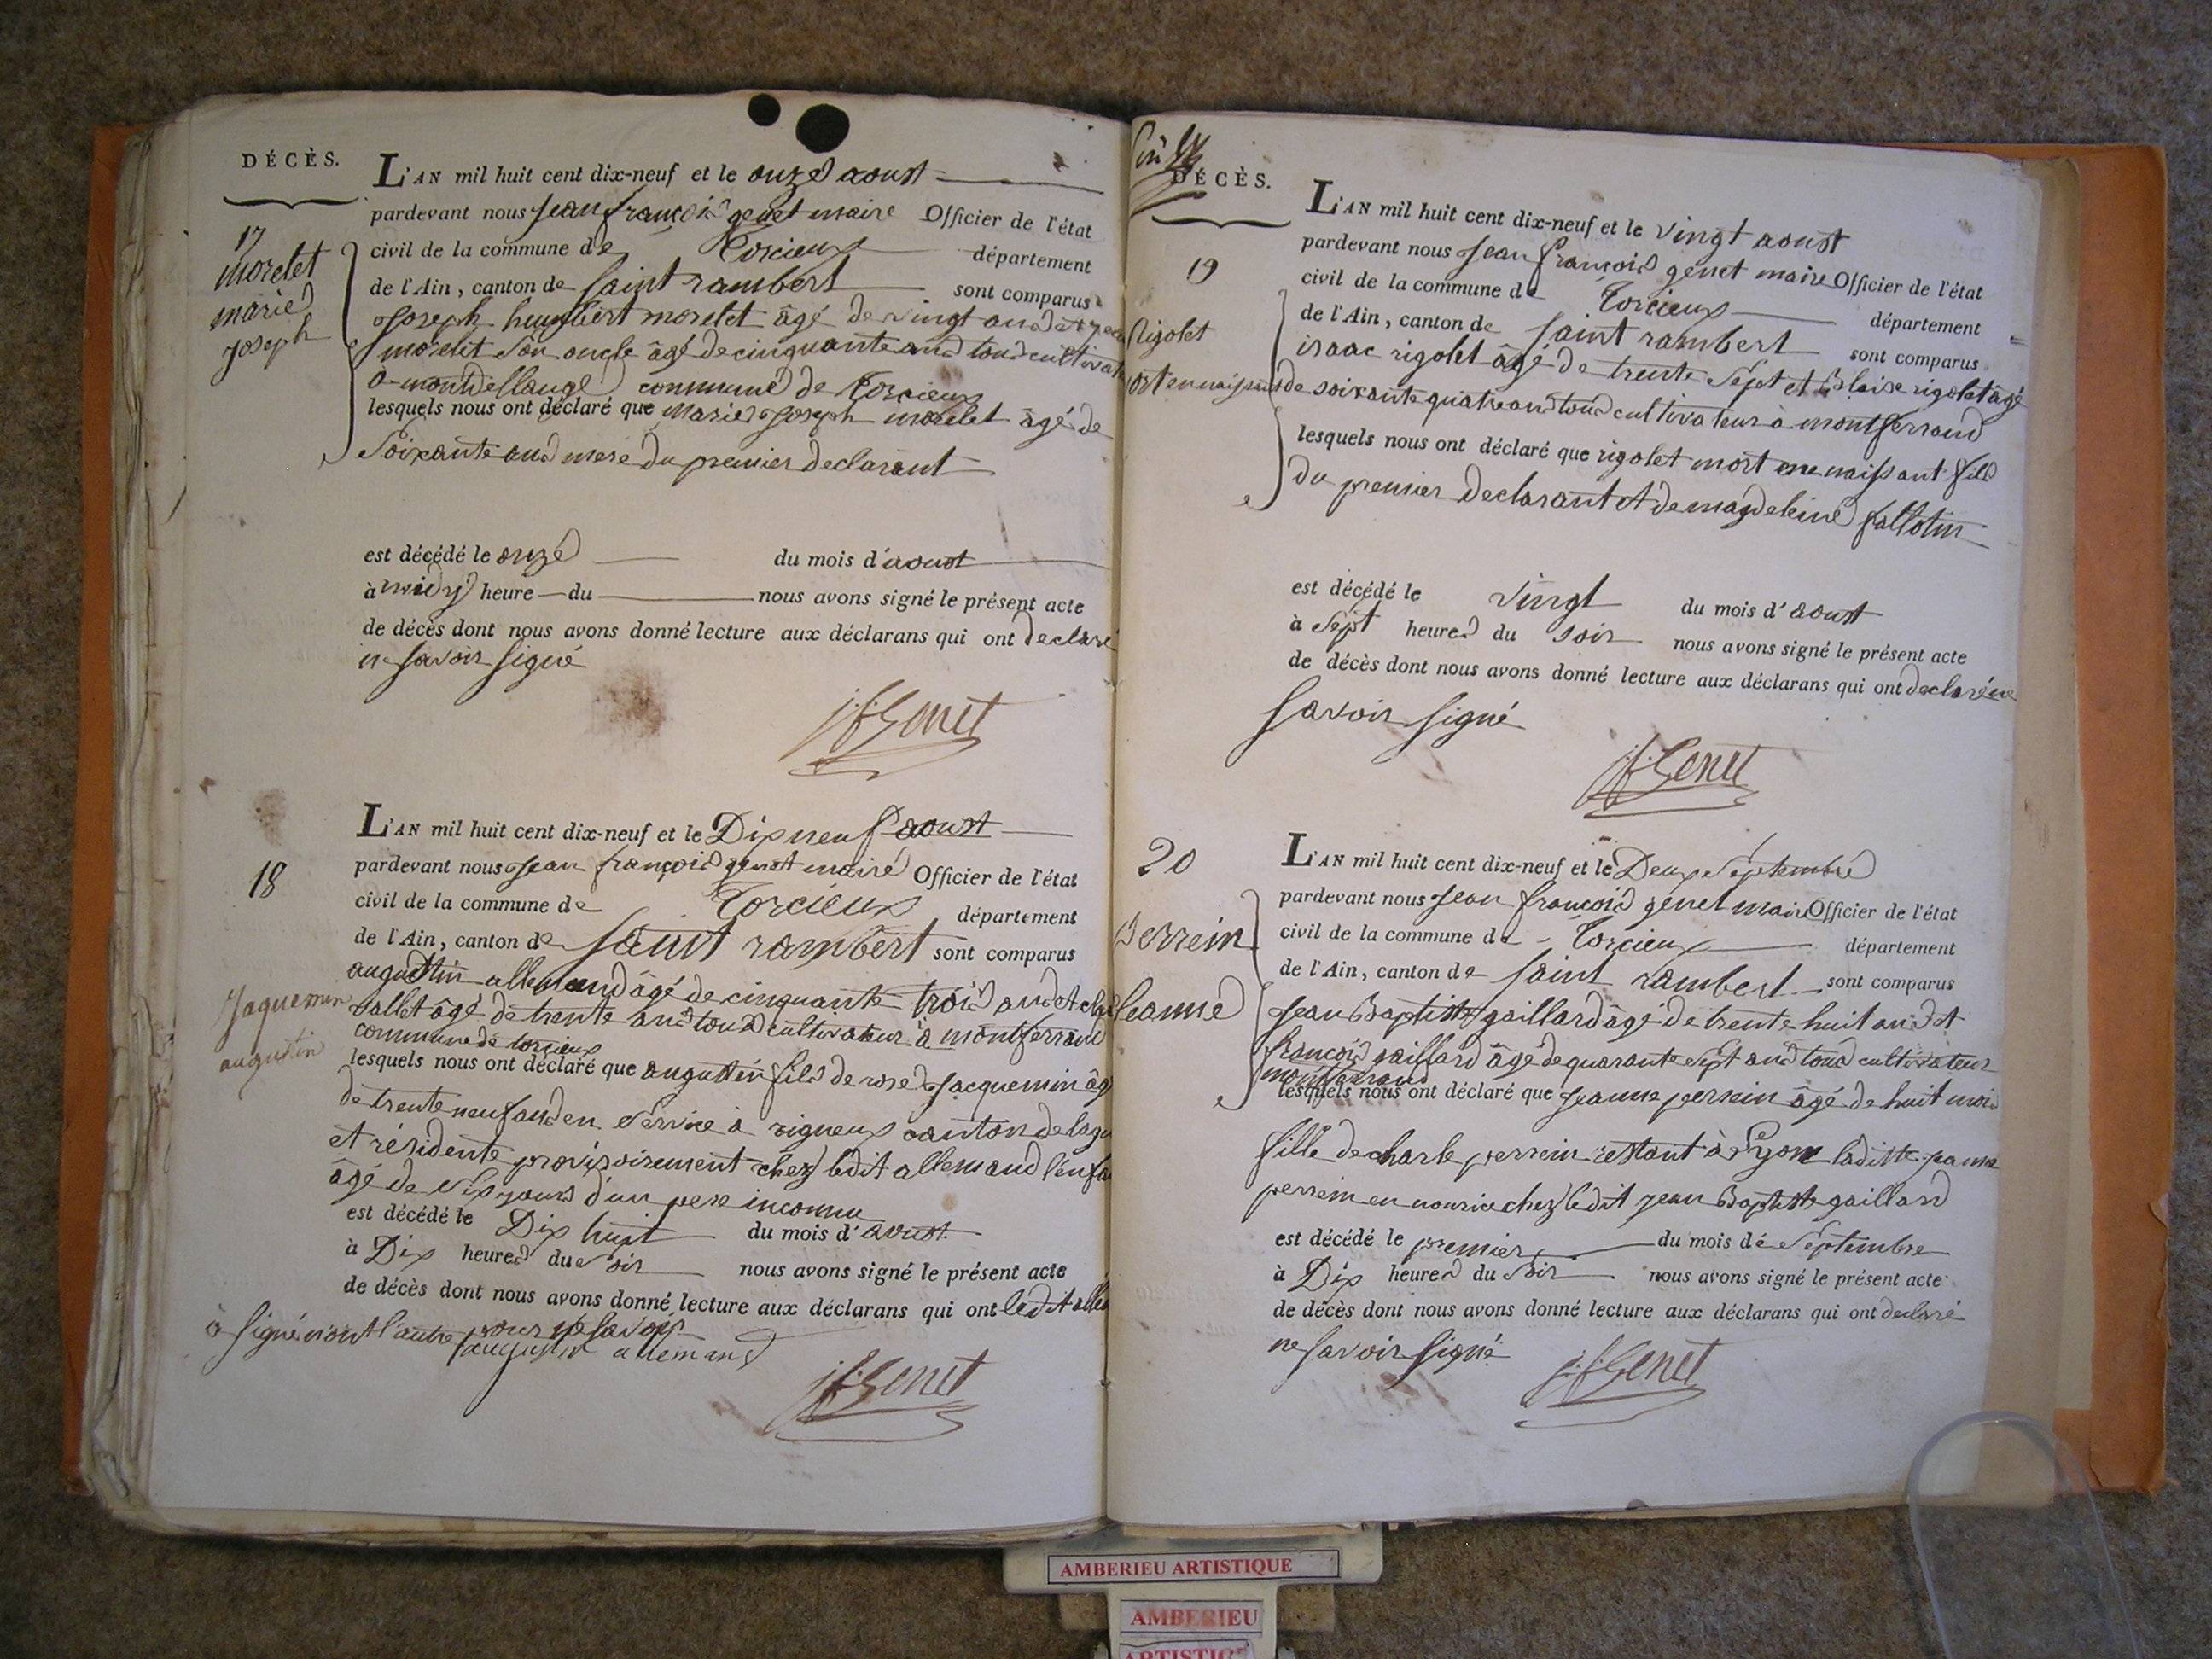 DÉCÈS.
L'AN mil huit cent dix-neuf et le onze aoust
pardevant nous jean françois genet maire Officier de l'état
civil de la commune de Torcieux département
de l'Ain, canton de saint rambert sont comparus
17
morelet
marie
joseph
joseph humbert morelet âgé de vingt ans et
morelet son oncle âgé de cinquante ans tous cultivat
commune de torcieux
lesquels nous ont déclaré que marie joseph morelet âgé de
soixante ans mere du premier declarant
est décédé le onze du mois d'aoust
à midy heure du nous avons signé le présent acte
de décès dont nous avons donné lecture aux déclarans qui ont declaré
ne savoir signé
jf Genet
18
jaquemin
augustin
L'AN mil huit cent dix-neuf et le Dix neuf aoust
pardevant nous jean françois genet maire Officier de l'état
civil de la commune de Torcieux département
de l'Ain, canton de saint rambert sont comparus
augustin allemand âgé de cinquante trois ans et
vallet âgé de trente ans tous cultivateur à montferrand
commune de torcieux
lesquels nous ont déclaré que augustin fils de rose jacquemin âg
de trente neuf ans en service à rigneux canton de lagn
et résidente provisoirement chez ledit allemand l'enfa
âgé de six jours d'un pere inconnu
est décédé le Dix huit du mois d'aoust
à Dix heures du soir nous avons signé le présent acte
de décès dont nous avons donné lecture aux déclarans qui ont ledit alle
à signé non l'autre pour ne savoir
augustin allemand
jf Genet
DÉCÈS.
19
Rigolet
ort en naissant
L'AN mil huit cent dix-neuf et le vingt aoust
pardevant nous jean françois genet maire Officier de l'état
civil de la commune de Torcieux département
de l'Ain, canton de saint rambert sont comparus
isaac rigolet âgé de trente sept et blaise rigolet âgé
de soixante quatre ans tous cultivateur à montferrand
lesquels nous ont déclaré que rigolet mort ene naissant fils
du premier declarant et de magdeleine fallotin
est décédé le vingt du mois d'aoust
à sept heures du soir nous avons signé le présent acte
de décès dont nous avons donné lecture aux déclarans qui ont declaré ne
savoir signé
jf Genet
20
perrein
jeanne
L'AN mil huit cent dix-neuf et le Deux septembre
pardevant nous jean françois genet maire Officier de l'état
civil de la commune de Torcieux département
de l'Ain, canton de saint rambert sont comparus
jean Baptiste gaillard âgé de trente huit ans et
françois gaillard âgé de quarante sept ans tous cultivateur
montferrand
lesquels nous ont déclaré que jeanne perrein âgé de huit mois
fille de charle perrein restant à Lyon laditte jeanne
perrein en nourice chez ledit jean Baptiste gaillard
est décédé le premier du mois de septembre
à Dix heures du soir nous avons signé le présent acte
de décès dont nous avons donné lecture aux déclarans qui ont declaré
ne savoir signé
jf Genet
AMBERIEU ARTISTIQUE
AMBERIEU
ARTISTIQUE